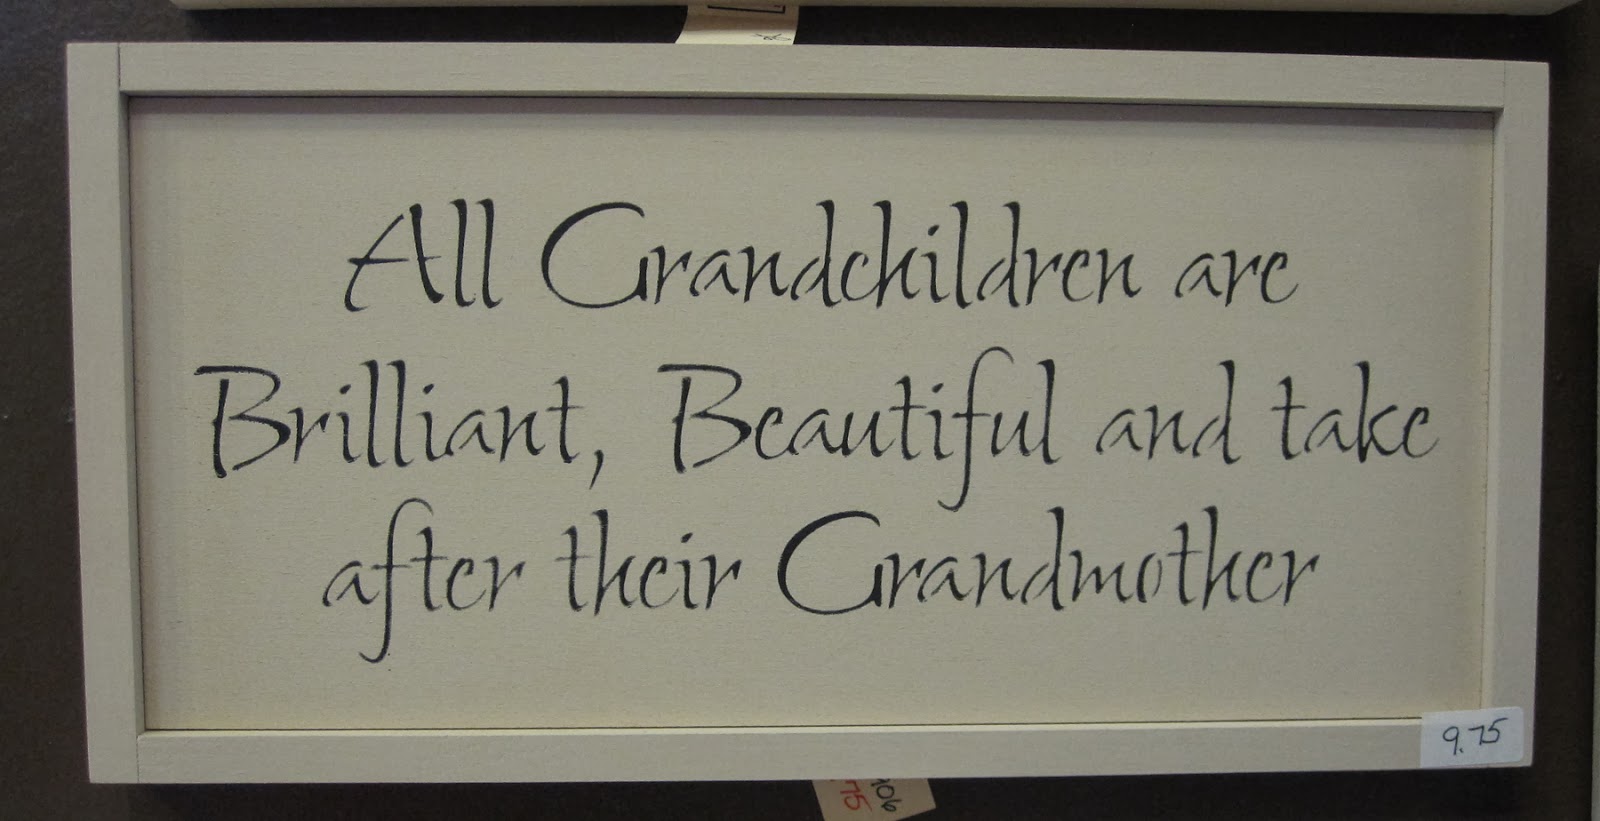 All Grandchildren are
Brilliant, Beautiful and take
after their Grandmother
9.75